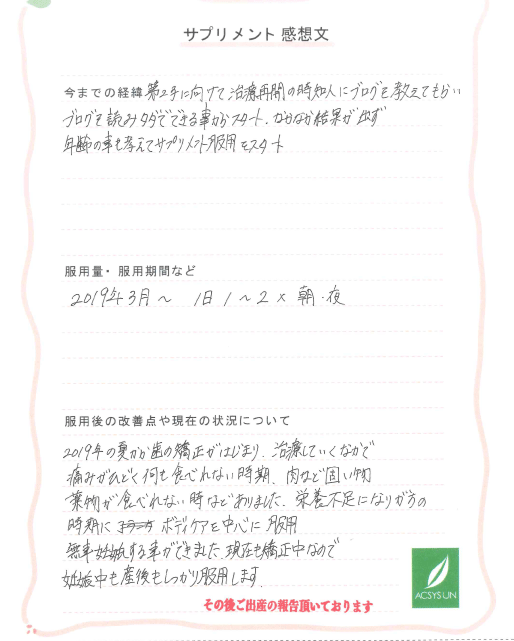 サプリメント 感想文
今までの経緯 第2子に向けて治療再開の時知人にブログを教えてもらい
ブログを読みタダでできる事からスタート、なかなか結果が出ず
年齢の事も考えてサプリメント服用をスタート
服用量・服用期間など
2019年3月〜 1日1〜2× 朝・夜
服用後の改善点や現在の状況について
2019年の夏から歯の矯正がはじまり、治療していくなかで
痛みがひどく何も食べれない時期、肉など固い物
葉物が食べれない時などありました、栄養不足になりがちの
時期に ボディケアを中心に服用
無事妊娠する事ができました、現在も矯正中なので
妊娠中も産後もしっかり服用します。
その後ご出産の報告頂いております
ACSYSUN